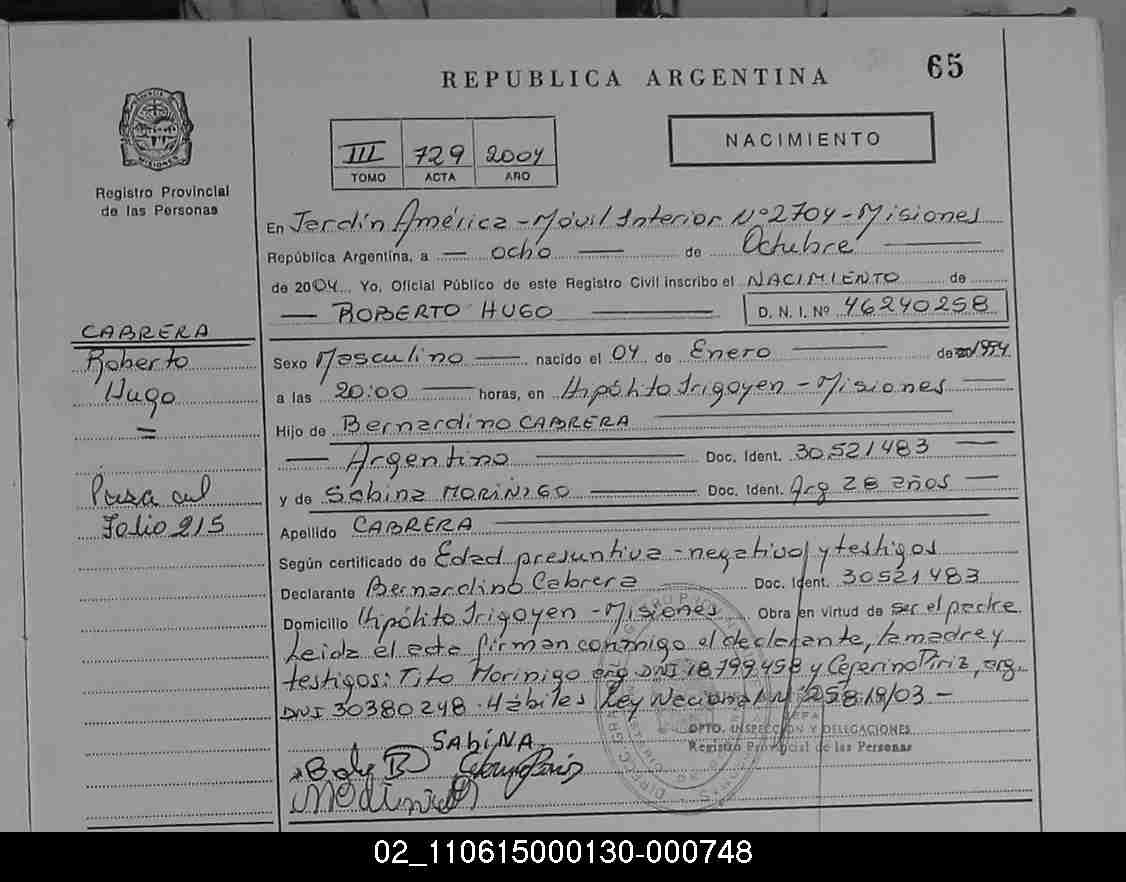 65
REPUBLICA ARGENTINA
III 729 2004
TOMO ACTA AÑO
NACIMIENTO
Registro Provincial
de las Personas
En Jardín América - Móvil Interior Nº 2704 - Misiones
República Argentina, a — ocho — de Octubre —
de 2004 Yo, Oficial Público de este Registro Civil inscribo el NACIMIENTO de
— ROBERTO HUGO — D. N. I. Nº 46240258
CABRERA
Roberto
Hugo
=
Sexo Masculino — nacido el 04 de Enero — de 1994
a las 20:00 — horas, en Hipólito Irigoyen - Misiones —
Hijo de Bernardino CABRERA
— Argentino — Doc. Ident. 30521483 —
y de Sabina MORINIGO — Doc. Ident. Arg 28 años —
Pasa al
Folio 215
Apellido CABRERA
Según certificado de Edad presuntiva - negativa y testigos
Declarante Bernardino Cabrera Doc. Ident. 30521483
Domicilio Hipólito Irigoyen - Misiones Obra en virtud de ser el padre
Leida el acta firman conmigo el declarante, la madre y
testigos: Tito Morinigo arg DNI 18.799.458 y Ceferino Piriz, arg.
DNI 30380248. Hábiles Ley Nacional Nº 25818/03 -
DPTO. INSPECCION Y DELEGACIONES
Registro Provincial de las Personas
SABINA
02_110615000130-000748